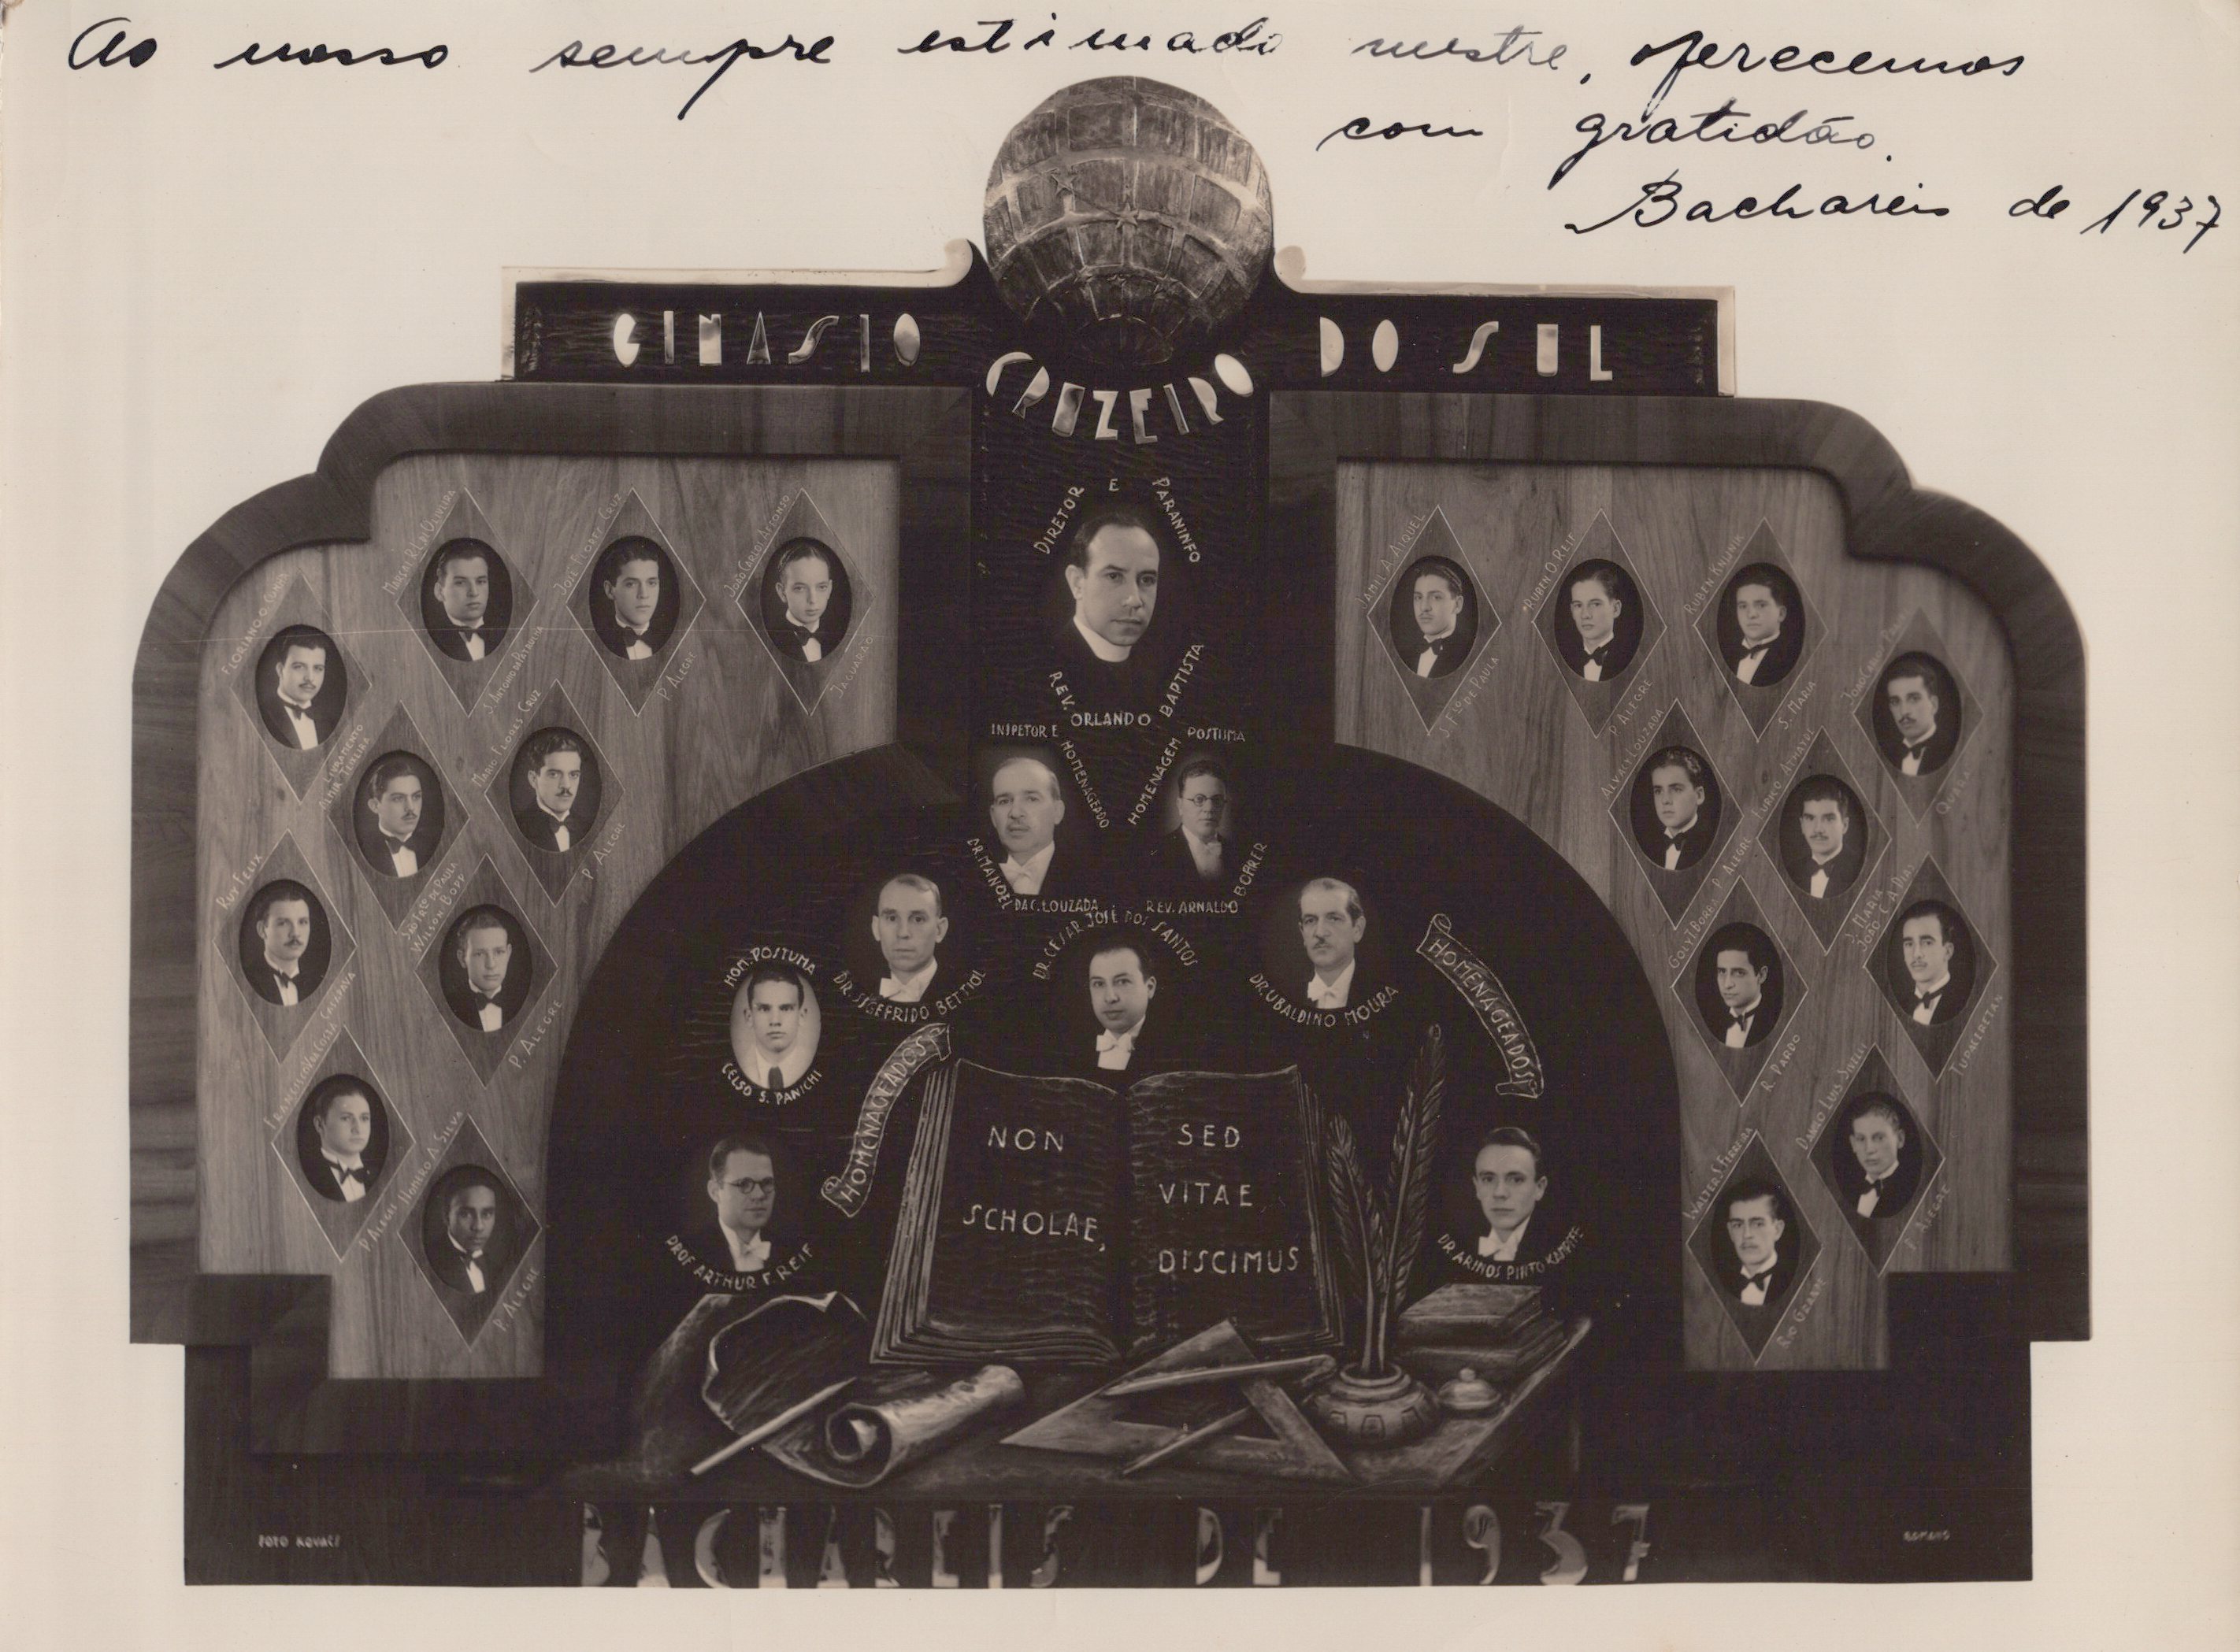 Ao nosso sempre estimado mestre, oferecemos
com gratidão.
Bachareis de 1937
GINASIO CRUZEIRO DO SUL
DIRETOR E PARANINFO
REV. ORLANDO BAPTISTA
INSPETOR E HOMENAGEADO
DR. MANOEL DA C. LOUZADA
HOMENAGEM POSTUMA
REV. ARNALDO BORRER
DR. SIGEFRIDO BETTIOL
DR. CESAR JOSÉ DOS SANTOS
DR. UBALDINO MOURA
HOM. POSTUMA
CELSO S. PANICHI
HOMENAGEADOS
HOMENAGEADOS
PROF. ARTHUR F. REIF
DR. ARINOS PINTO KAMPFF
NON
SCHOLAE,
SED
VITAE
DISCIMUS
FLORIANO O.
LIVRAMENTO
OLIVEIRA
S. ANTONIO DA PATRULHA
JOSÉ FLORES CRUZ
P. ALEGRE
JOÃO CARLOS AFFONSO
JAGUARÃO
ALMIR
S. FR.CO DE PAULA
MARIO FLORES CRUZ
P. ALEGRE
RUY FELIX
WILSON BOPP
P. ALEGRE
FRANCISCO
P. ALEGRE
HOMERO A. SILVA
P. ALEGRE
JAMIL A. AIQUEL
S. FCO DE PAULA
RUBEN O. REIF
P. ALEGRE
RUBEN KNIJNIK
S. MARIA
QUARAI
ALVAY LOUZADA
P. ALEGRE
EURICO
S. MARIA
R. PARDO
JOÃO C. A. DIAS
TUPACERETAN
DANILO LUIS
P. ALEGRE
WALTER S. FERREIRA
RIO GRANDE
BACHAREIS DE 1937
FOTO KOVACS
ROMANO